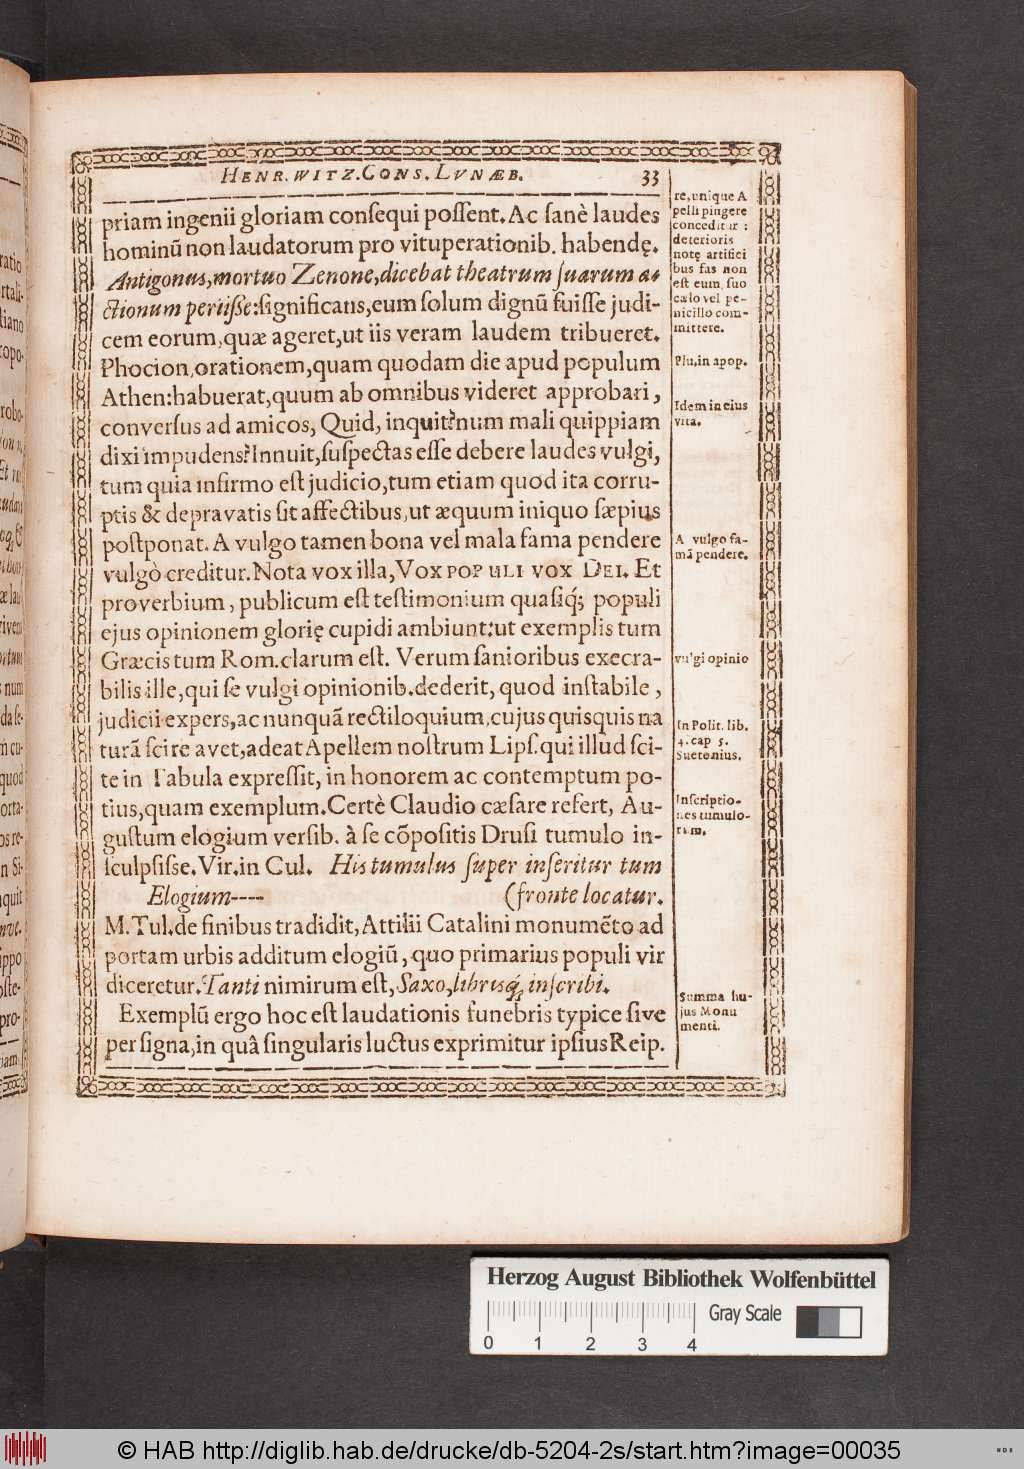 HENR. WITZ. CONS. LVNÆB. 33
priam ingenii gloriam conſequi poſſent. Ac ſanè laudes
hominũ non laudatorum pro vituperationib. habendę.
Antigonus, mortuo Zenone, dicebat theatrum ſuarum a-
ctionum periiſſe: ſignificans, eum ſolum dignũ fuiſſe judi-
cem eorum, quæ ageret, ut iis veram laudem tribueret.
Phocion, orationem, quam quodam die apud populum
Athen: habuerat, quum ab omnibus videret approbari,
converſus ad amicos, Quid, inquit? num mali quippiam
dixi impudens? Innuit, ſuſpectas eſſe debere laudes vulgi,
tum quia infirmo eſt judicio, tum etiam quod ita corru-
ptis & depravatis ſit affectibus, ut æquum iniquo ſæpius
poſtponat. A vulgo tamen bona vel mala fama pendere
vulgò creditur. Nota vox illa, VOX POPULI VOX DEI. Et
proverbium, publicum eſt teſtimonium quaſiq́; populi
ejus opinionem glorię cupidi ambiunt: ut exemplis tum
Græcis tum Rom. clarum eſt. Verum ſanioribus execra-
bilis ille, qui ſe vulgi opinionib. dederit, quod inſtabile,
judicii expers, ac nunquã rectiloquium, cujus quisquis na
turã ſcire avet, adeat Apellem noſtrum Lipſ. qui illud ſci-
te in Tabula expreſſit, in honorem ac contemptum po-
tius, quam exemplum. Certè Claudio cæſare refert, Au-
guſtum elogium verſib. à ſe cõpoſitis Druſi tumulo in-
ſculpſiſse. Vir. in Cul. His tumulus ſuper inſeritur tum
Elogium---- (fronte locatur.
M. Tul. de finibus tradidit, Attilii Catalini monumẽto ad
portam urbis additum elogiũ, quo primarius populi vir
diceretur. Tanti nimirum eſt, Saxo, librisq́; inſcribi.
Exemplũ ergo hoc eſt laudationis funebris typice ſive
per ſigna, in quâ ſingularis luctus exprimitur ipſius Reip.
re, unique A
pelli pingere
conceditur:
deterioris
notę artifici
bus fas non
eſt eum, ſuo
cælo vel pe-
nicillo com-
mittere.
Plu. in apop.
Idem in eius
vita.
A vulgo fa-
mã pendere.
vulgi opinio
In Polit. lib.
4. cap 5.
Suetonius.
Inſcriptio-
nes tumulo-
rum.
Summa hu-
jus Monu
menti.
Herzog August Bibliothek Wolfenbüttel
Gray Scale
0 1 2 3 4
© HAB http://diglib.hab.de/drucke/db-5204-2s/start.htm?image=00035